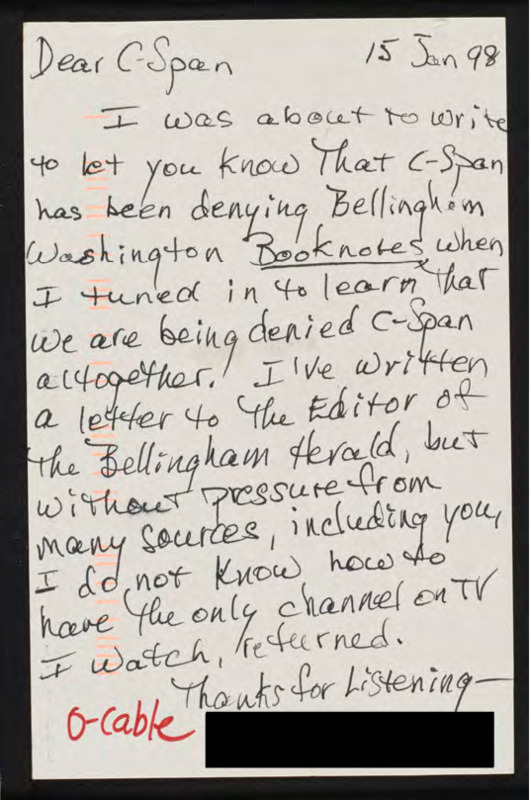 Dear C-Span 15 Jan 98
I was about to write
to let you know That C-Span
has been denying Bellingham
Washington Booknotes when
I tuned in to learn That
we are being denied C-Span
altogether! I've written
a letter to The Editor of
The Bellingham Herald, but
without pressure from
many sources, including you,
I do not know how to
have The only channel on TV
I watch, returned.
Thanks for Listening—
O-cable